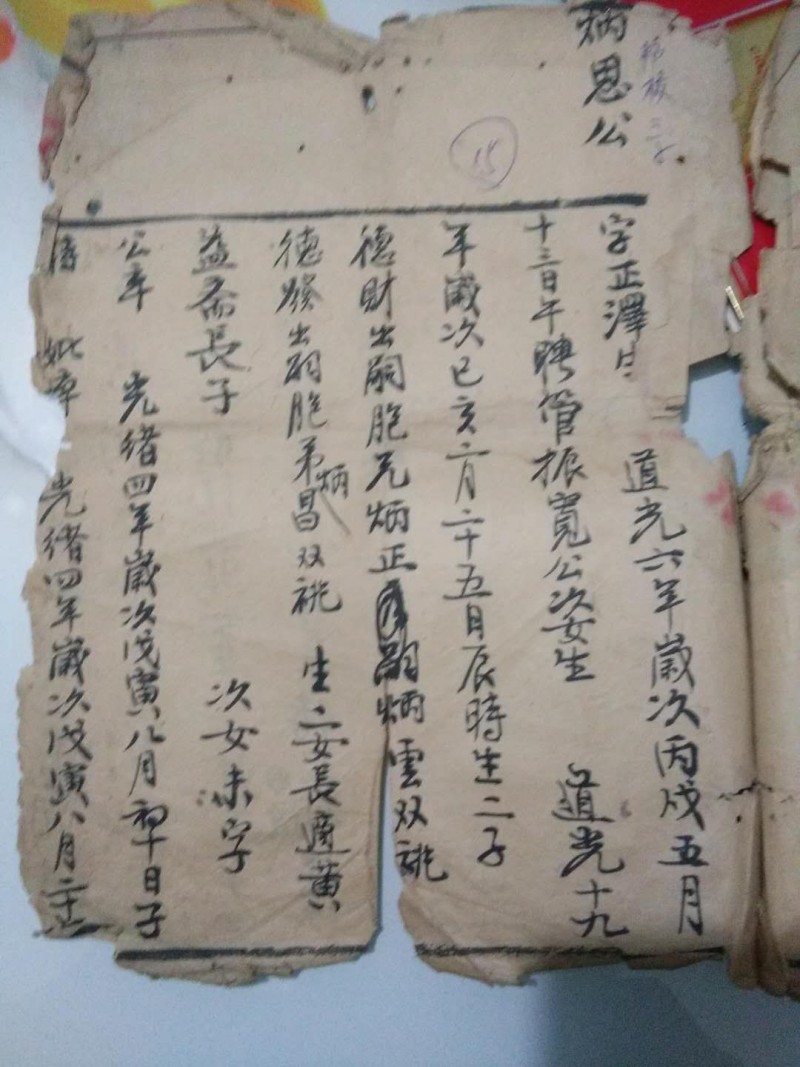 炳恩公
15
字正澤生 道光六年歲次丙戌五月
十三日午聘管振寬公次女生 道光十九
年歲次己亥二月二十五日辰時生二子
德財出嗣胞兄炳正嗣炳雲双祧
德發出嗣胞弟炳昌双祧 生二女長適黃
益斋長子 次女未字
公卒 光緒四年歲次戊寅八月初十日子
時 妣卒 光緒四年歲次戊寅八月二十